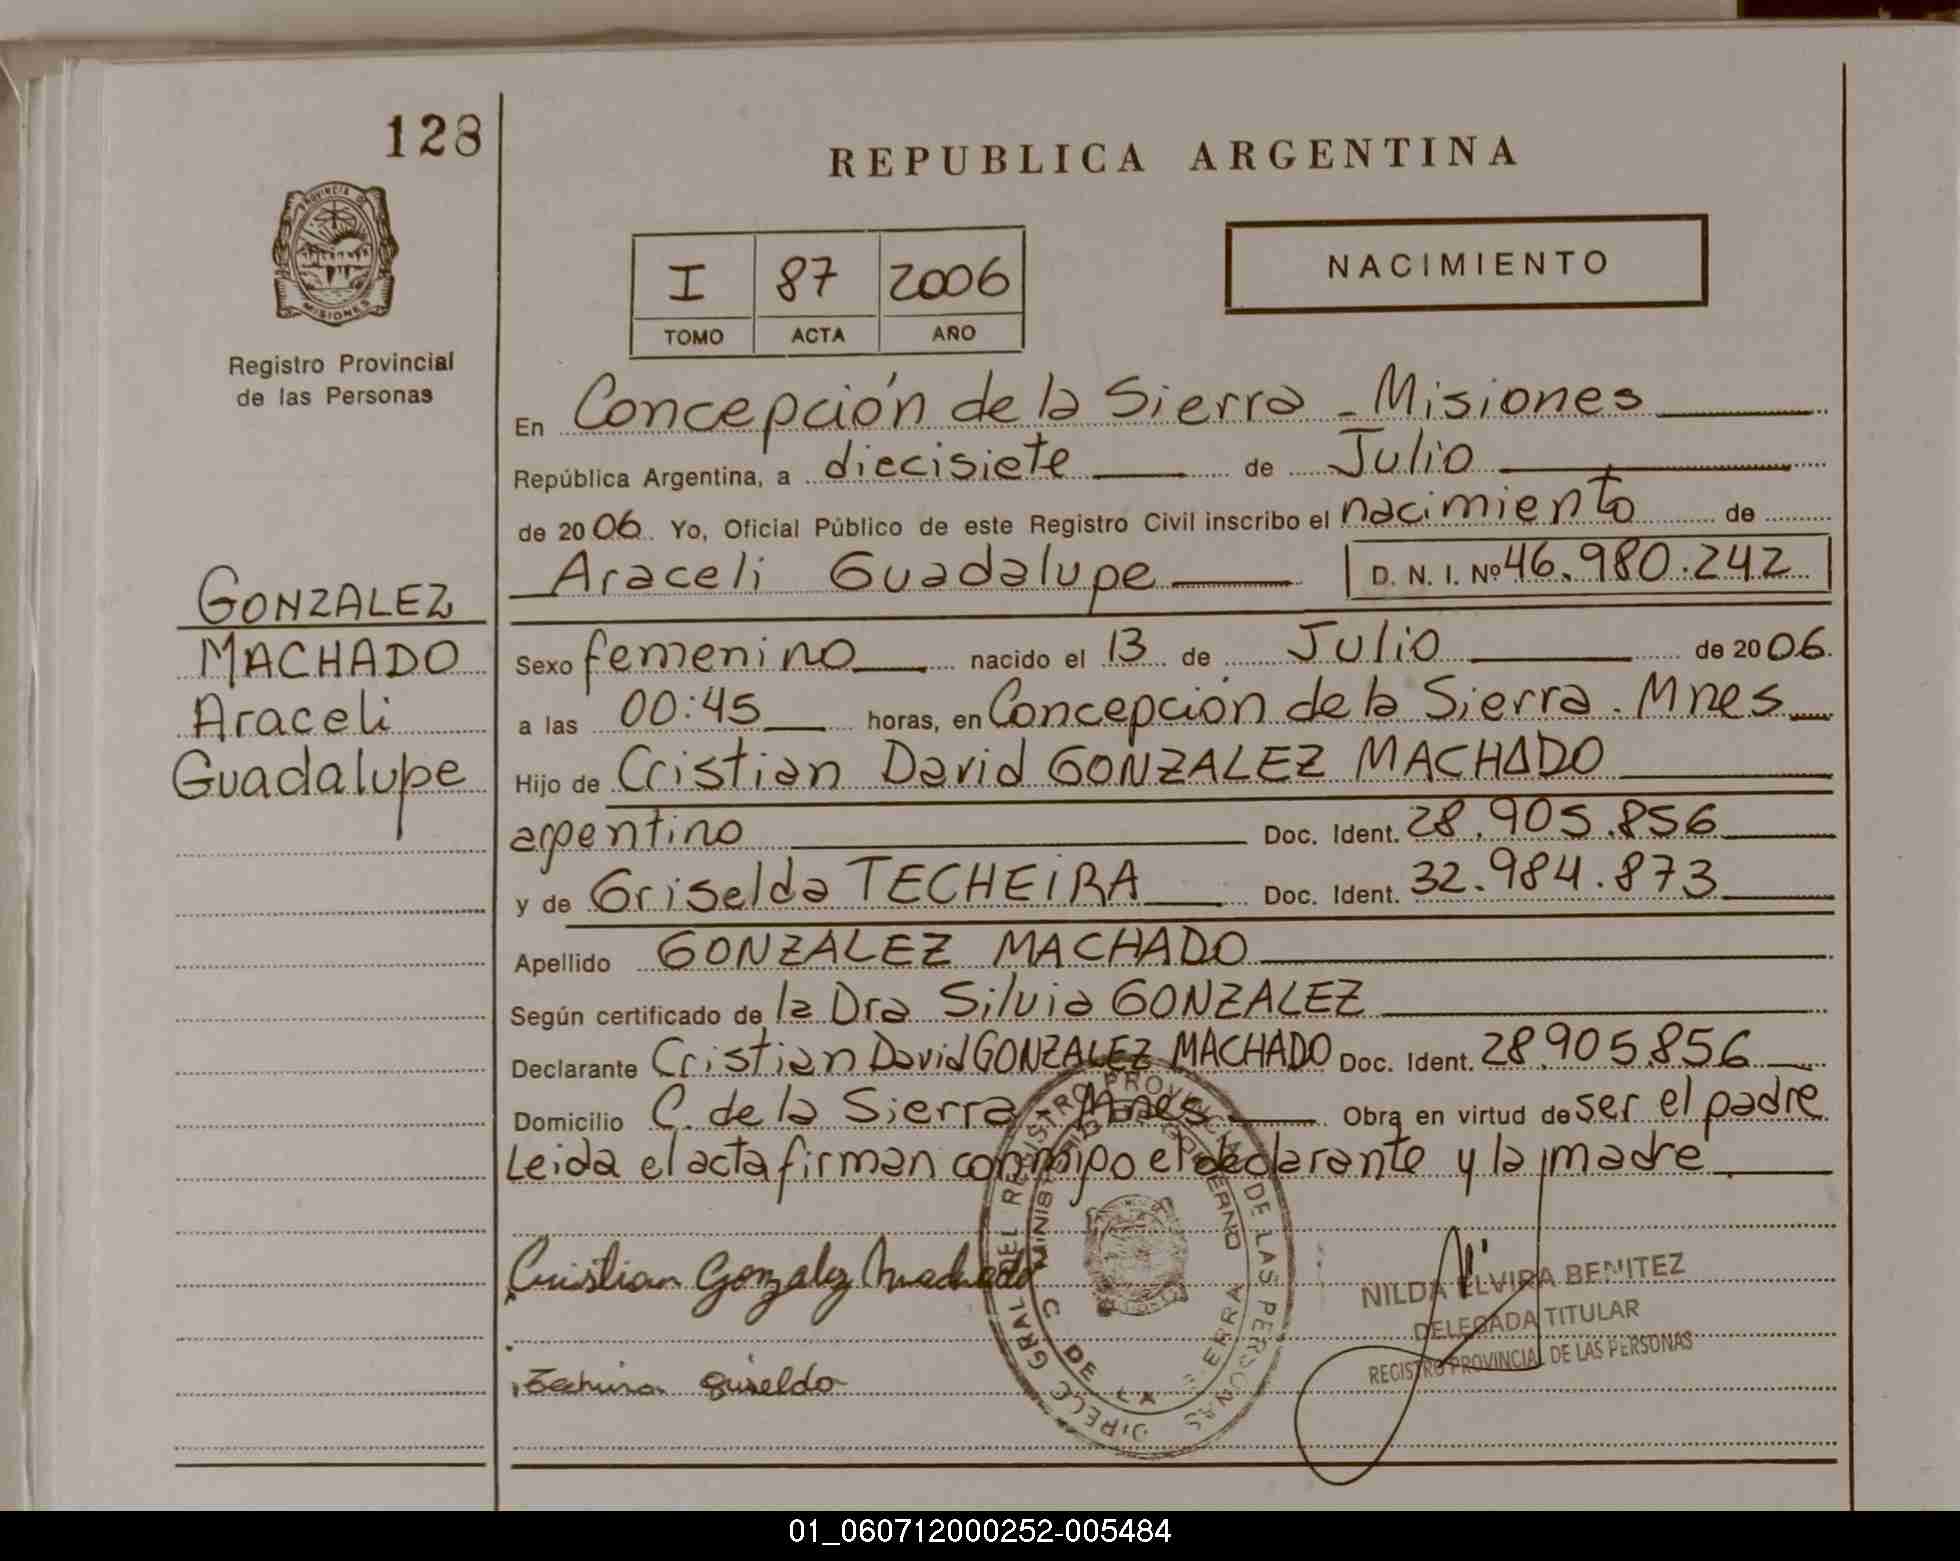 128
PROVINCIA DE
MISIONES
Registro Provincial
de las Personas
GONZALEZ
MACHADO
Araceli
Guadalupe
REPUBLICA ARGENTINA
I 87 2006
TOMO ACTA AÑO
NACIMIENTO
En Concepción de la Sierra - Misiones
República Argentina, a diecisiete de Julio
de 2006. Yo, Oficial Público de este Registro Civil inscribo el nacimiento de
Araceli Guadalupe D. N. I. Nº 46.980.242
Sexo femenino nacido el 13 de Julio de 2006.
a las 00:45 horas, en Concepción de la Sierra. Mnes
Hijo de Cristian David GONZALEZ MACHADO
argentino Doc. Ident. 28.905.856
y de Griselda TECHEIRA Doc. Ident. 32.984.873
Apellido GONZALEZ MACHADO
Según certificado de la Dra Silvia GONZALEZ
Declarante Cristian David GONZALEZ MACHADO Doc. Ident. 28.905.856
Domicilio C. de la Sierra Mnes Obra en virtud de ser el padre
Leida el acta firman conmigo el declarante y la madre.
Cristian Gonzalez Machado
Techeira Griselda
DIREC. GRAL DEL REGISTRO PROVINCIAL DE LAS PERSONAS
MINISTERIO DE GOBIERNO
C. DE LA SIERRA
NILDA ELVIRA BENITEZ
DELEGADA TITULAR
REGISTRO PROVINCIAL DE LAS PERSONAS
01_060712000252-005484